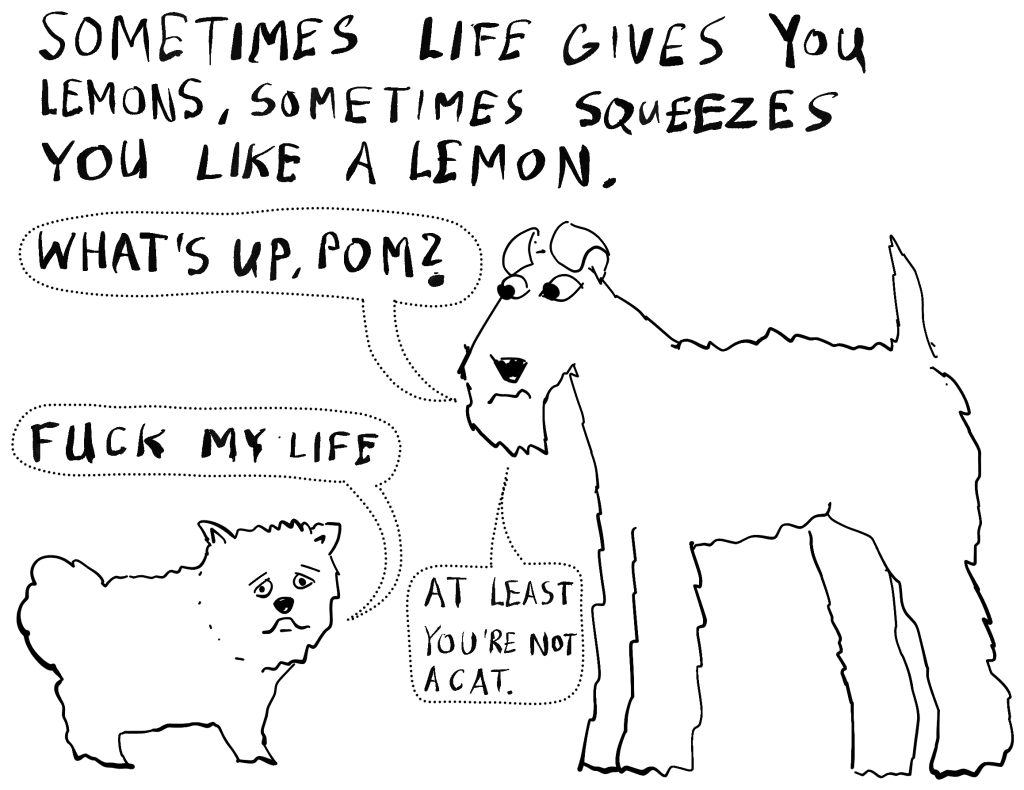 SOMETIMES LIFE GIVES YOU
LEMONS, SOMETIMES SQUEEZES
YOU LIKE A LEMON.
WHAT'S UP, POM?
FUCK MY LIFE
AT LEAST
YOU'RE NOT
A CAT.